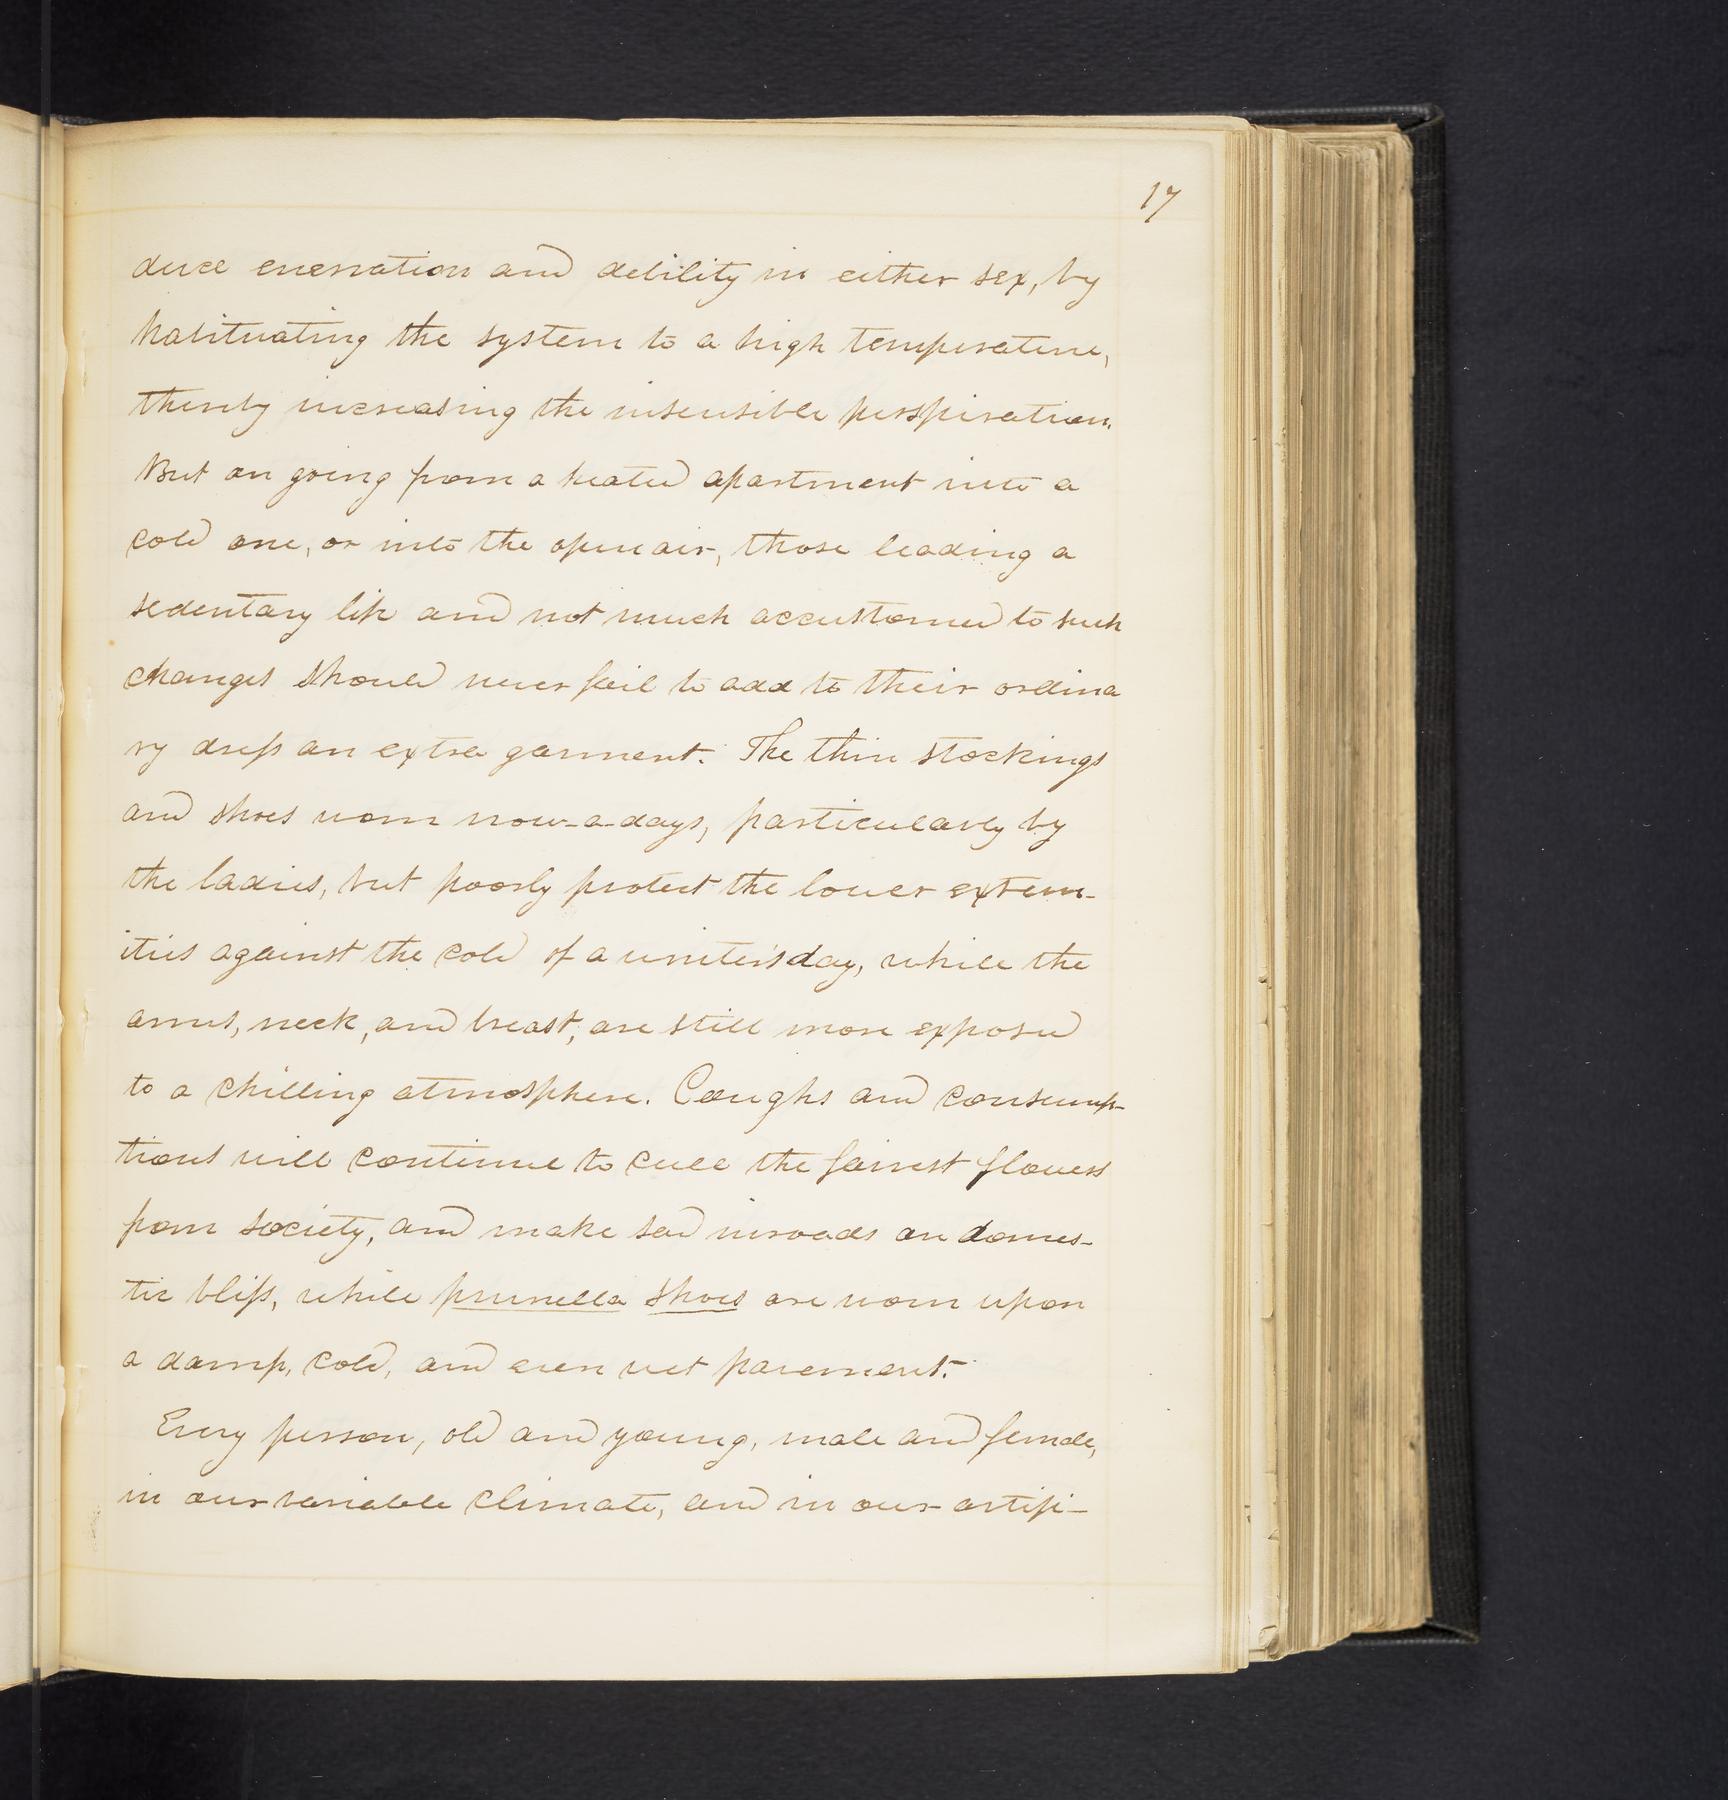 17
duce enervation and debility in either sex, by
habituating the system to a high temperature,
thereby increasing the insensible perspiration.
But on going from a heated apartment into a
cold one, or into the open air, those leading a
sedentary life and not much accustomed to such
changes should never fail to add to their ordina
ry dress an extra garment. The thin stockings
and shoes worn now-a-days, particularly by
the ladies, but poorly protect the lower extrem-
ities against the cold of a winter's day, while the
arms, neck, and breast, are still more exposed
to a chilling atmosphere. Coughs and consump-
tions will continue to cull the fairest flowers
from society, and make sad inroads on domes-
tic bliss, while prunella shoes are worn upon
a damp, cold, and even wet pavement.
Every person, old and young, male and female,
in our variable climate, and in our artifi-